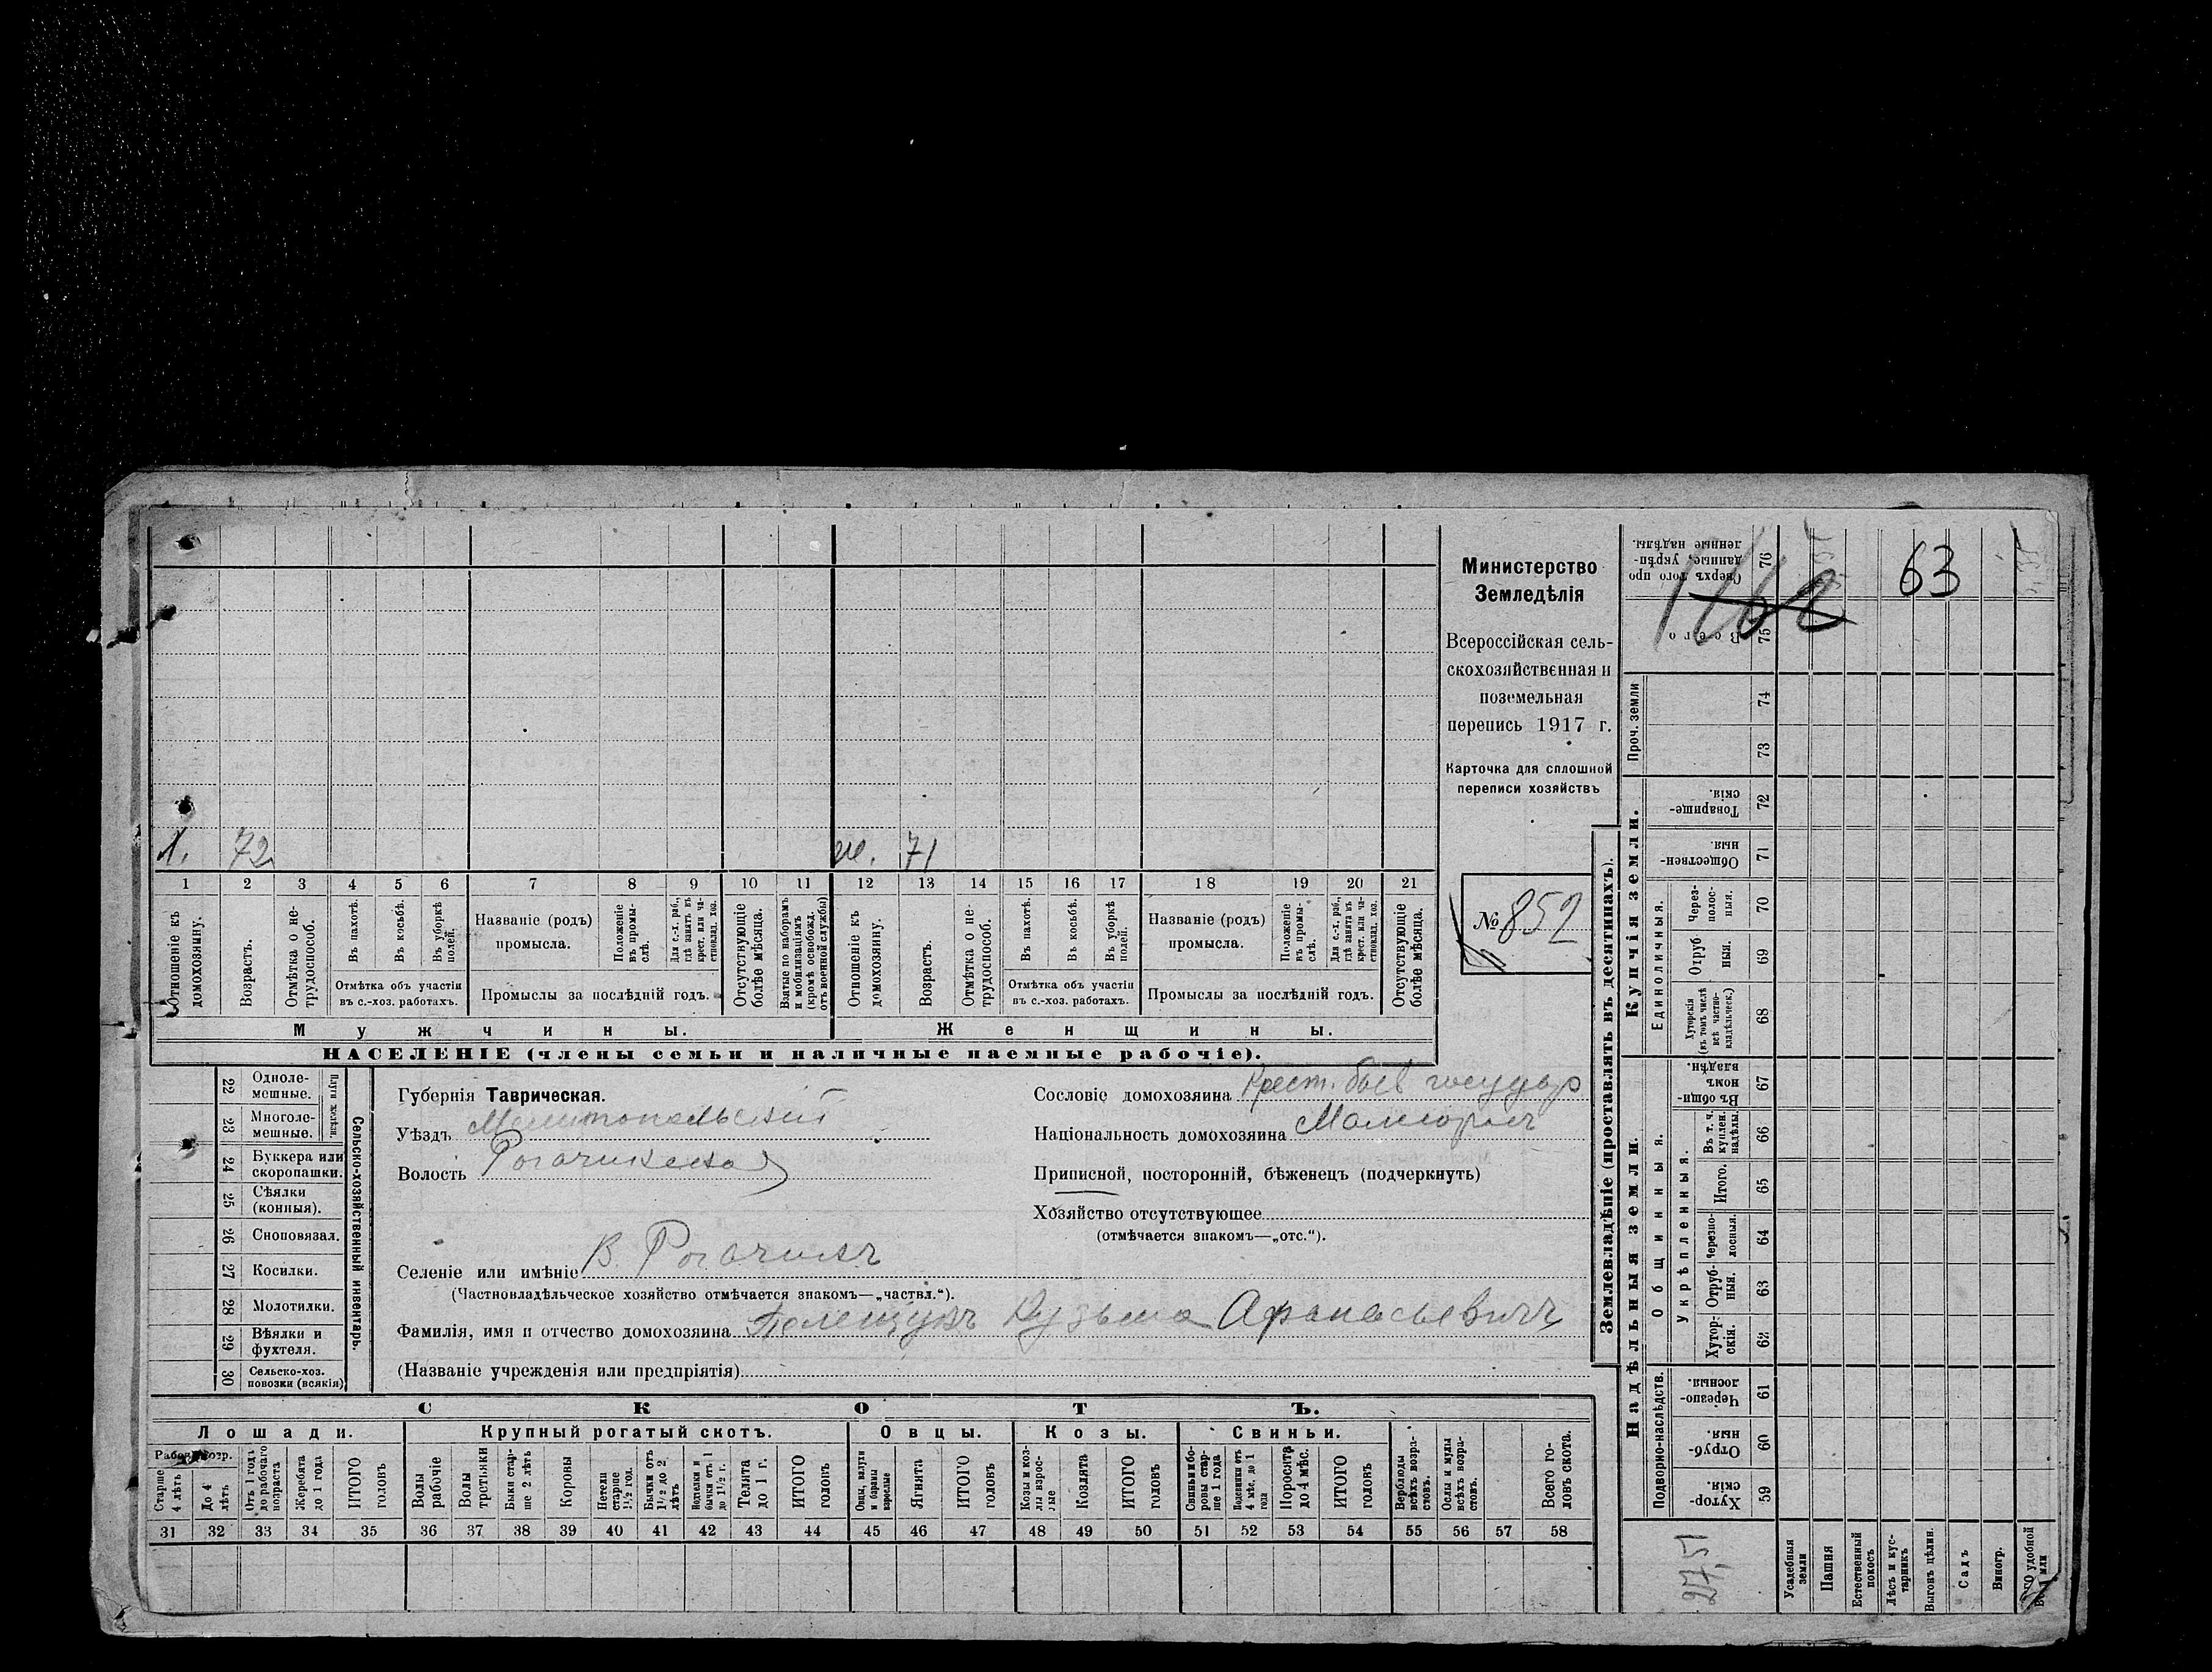 1. 72 ж. 71
1 2 3 4 5 6 7 8 9 10 11 12 13 14 15 16 17 18 19 20 21
Отношеніе къ домохозяину.
Возрастъ.
Отмѣтка о нетрудоспособ.
Въ пахотѣ.
Въ косьбѣ.
Въ уборкѣ полей.
Отмѣтка объ участіи
въ с.-хоз. работахъ.
Названіе (родъ)
промысла.
Положеніе въ промыслѣ.
Для с.-х. раб., гдѣ занятъ въ крест. или частновлад. хоз.
Промыслы за послѣдній годъ.
Отсутствующіе болѣе мѣсяца.
Взятые по наборамъ и мобилизаціямъ (кромѣ освобожд. отъ военной службы)
Отношеніе къ домохозяину.
Возрастъ.
Отмѣтка о нетрудоспособ.
Въ пахотѣ.
Въ косьбѣ.
Въ уборкѣ полей.
Отмѣтка объ участіи
въ с.-хоз. работахъ.
Названіе (родъ)
промысла.
Положеніе въ промыслѣ.
Для с.-х. раб., гдѣ занята въ крест. или частновлад. хоз.
Промыслы за послѣдній годъ.
Отсутствующіе болѣе мѣсяца.
Мужчины. Женщины.
НАСЕЛЕНІЕ (члены семьи и наличные наемные рабочіе).
Министерство
Земледѣлія
Всероссійская сель-
скохозяйственная и
поземельная
перепись 1917 г.
Карточка для сплошной
переписи хозяйствъ
№ 852
22 Одноле-
мешные.
23 Многоле-
мешные.
24 Буккера или
скоропашки.
25 Сѣялки
(конныя).
26 Сноповязал.
27 Косилки.
28 Молотилки.
29 Вѣялки и
фухтеля.
30 Сельско-хоз.
повозки (всякія)
Сельско-хозяйственный инвентарь.
Губернія Таврическая.
Уѣздъ Мелитопольскій
Волость Рогачикская
Селеніе или имѣніе В. Рогачикъ
(Частновладѣльческое хозяйство отмѣчается знакомъ—„частвл.“).
Фамилія, имя и отчество домохозяина Полещукъ Кузьма Афанасьевичъ
(Названіе учрежденія или предпріятія)
Сословіе домохозяина Крест. быв государ
Національность домохозяина Малоросъ
Приписной, посторонній, бѣженецъ (подчеркнуть)
Хозяйство отсутствующее
(отмѣчается знакомъ—„отс.“).
СКОТЪ.
Лошади. Крупный рогатый скотъ. Овцы. Козы. Свиньи.
Старше 4 лѣтъ
До 4 лѣтъ
Отъ 1 года до рабочаго возраста
Жеребята до 1 года
ИТОГО головъ
Волы рабочіе
Волы третьяки
Быки старше 2 лѣтъ
Коровы
Нетели старше 1½ год.
Бычки отъ 1½ до 2 лѣтъ
Нетельки и бычки отъ 1 до 1½ г.
Телята до 1 г.
ИТОГО головъ
Овцы, валухи и бараны взрослые
Ягнята
ИТОГО головъ
Козы и козлы взрослые
Козлята
ИТОГО головъ
Свиньи боровы старше 1 года
Подсвинки отъ 4 мѣс. до 1 года
Поросята до 4 мѣс.
ИТОГО головъ
Верблюды всѣхъ возрастовъ.
Ослы и мулы всѣхъ возрастовъ.
Всего головъ скота.
31 32 33 34 35 36 37 38 39 40 41 42 43 44 45 46 47 48 49 50 51 52 53 54 55 56 57 58
Землевладѣніе (проставлять въ десятинахъ).
Сверхъ того проданные, укрѣпленные надѣлы. 76
Всего 75
63
Проч. земли
74
73
Купчія земли.
Товарищескія. 72
Общественныя. 71
Единоличныя.
Черезполосныя. 70
Отрубныя. 69
Хуторскія (въ томъ числѣ всѣ частновладѣльческ.) 68
Надѣльныя земли.
Въ общинномъ владѣн. 67
Общинныя.
Укрѣпленныя.
Въ т. ч. куплен. надѣлы. 66
Итого. 65
Черезполосныя. 64
Отрубныя. 63
Хуторскія. 62
Подворно-наслѣдств.
Черезполосныя. 61
Отрубныя. 60
Хуторскія. 59
27,51
Усадебныя земли
Пашня
Естественный покосъ
Лѣсъ и кустарникъ
Выгонъ цѣлин.
Садъ
Виногр.